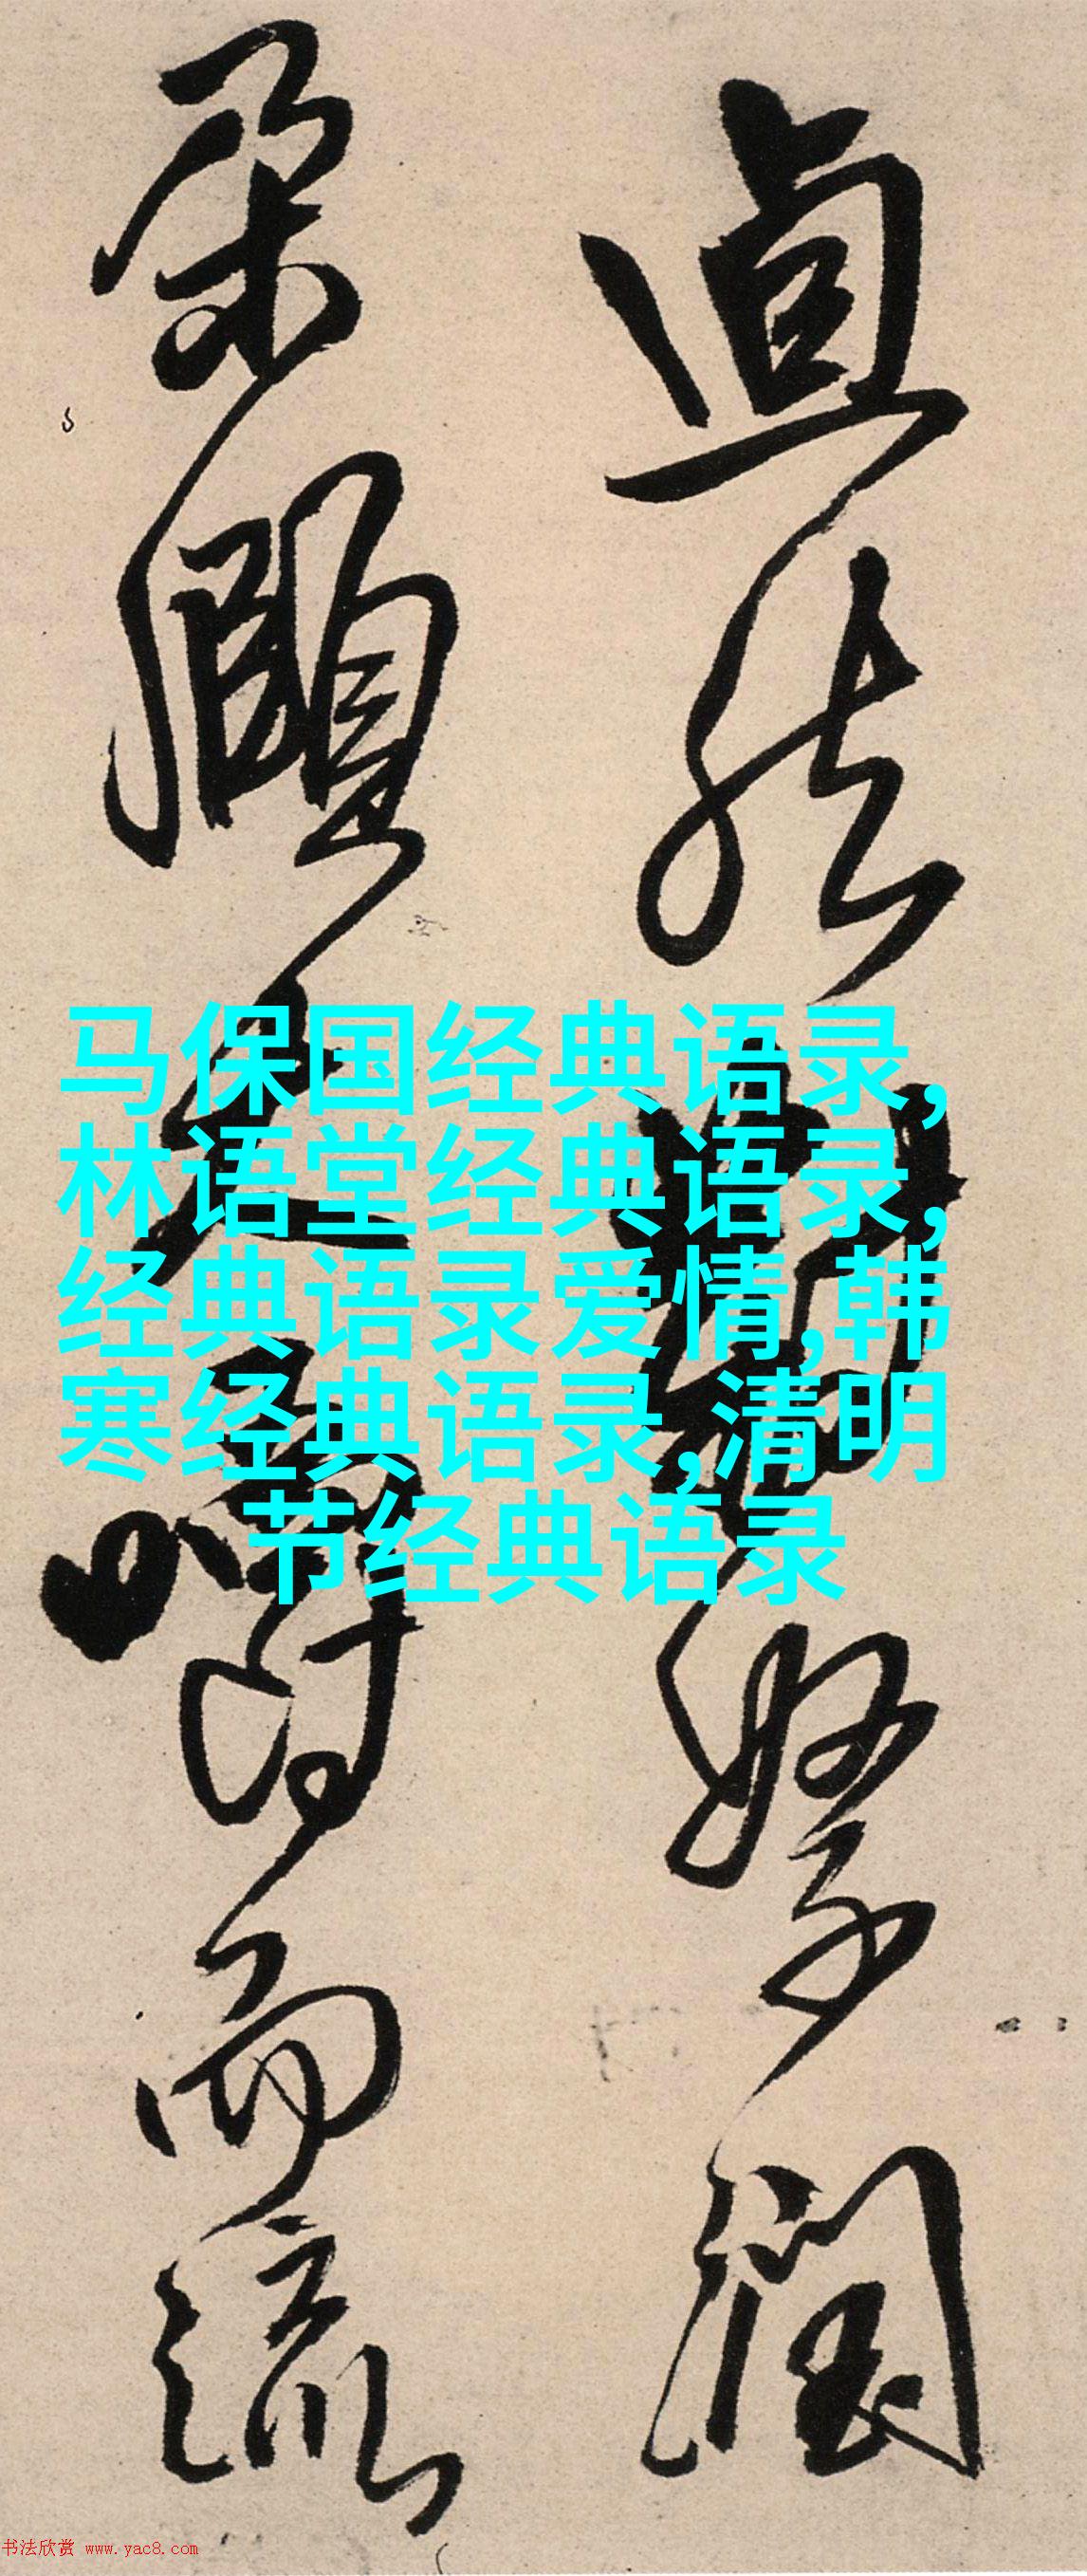 马保国经典语录,
林语堂经典语录,
经典语录爱情,韩
寒经典语录,清明
节经典语录
然 潤
朶頤大嚼而流
书法欣赏 www.yac8.com